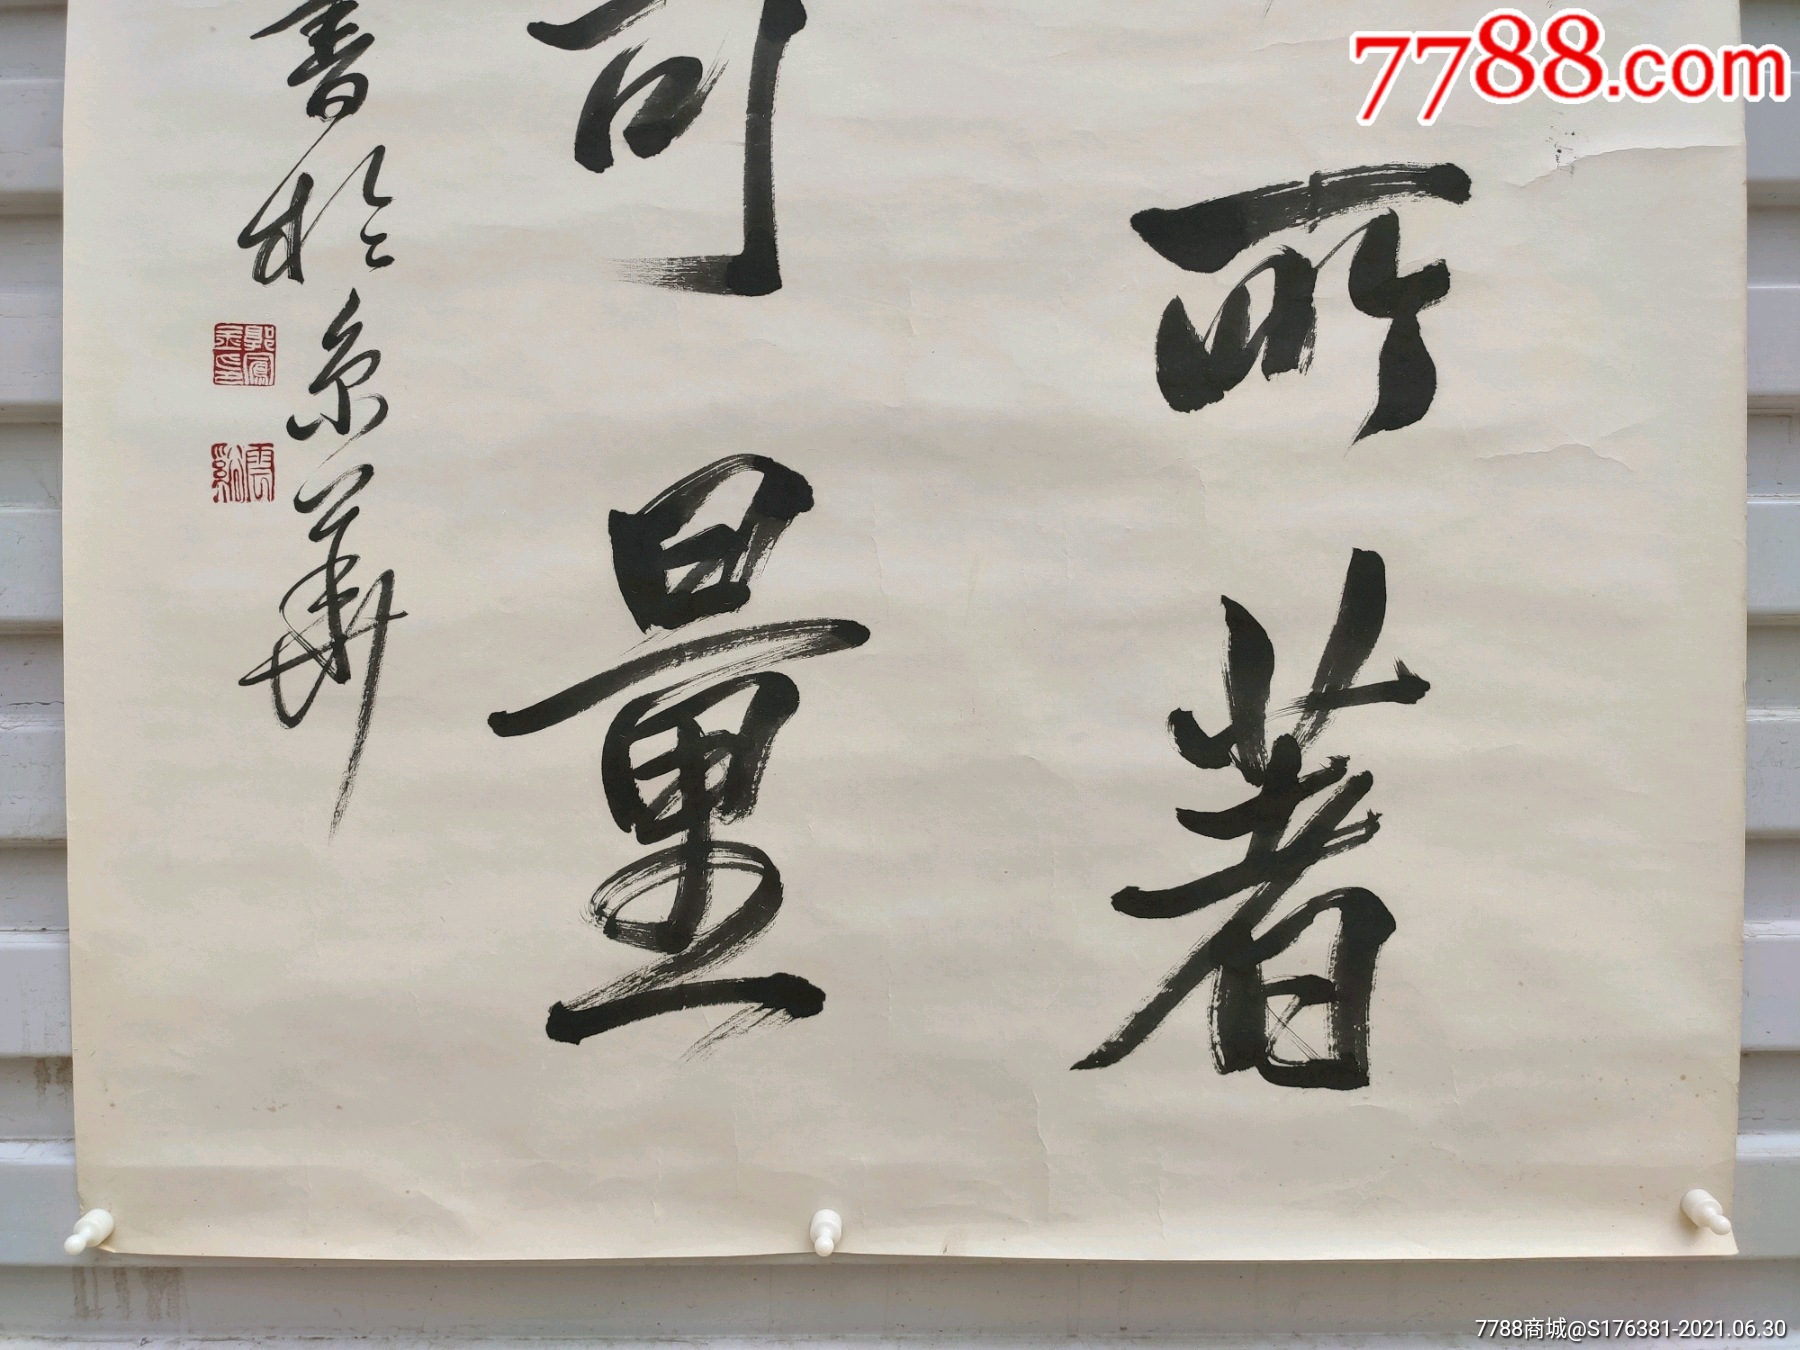 7788.com
所著
可量
書於京華
郭鳳
雲谿
7788商城@S176381-2021.06.30